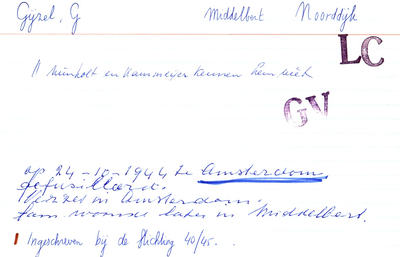 Gijzel, G Middelbert Noorddijk
LC
Munholt en Kammeijer kennen hem niet
GV
op 24-10-1944 te Amsterdam
gefusilleerd.
Verzet in Amsterdam.
fam. woonde later in Middelbert.
Ingeschreven bij de Stichting 40/45.